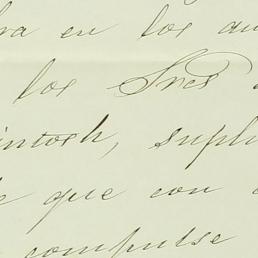 ra en los au
los Sres
intosh, supli
e que con
compulse